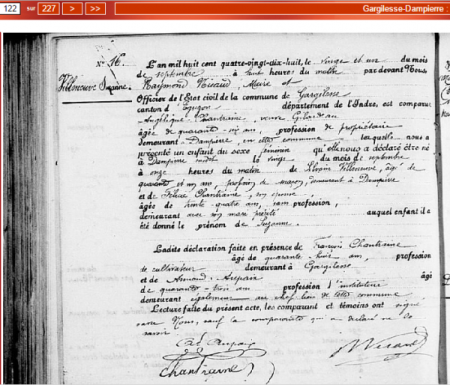 122 sur 227 > >> Gargilesse-Dampierre :
N° 16.
Villeneuve Suzanne.
L'an mil huit cent quatre-vingt-dix-huit, le vingt et un du mois
de septembre à huit heures du matin par devant Nous
Raymond Maire et
Officier de l'Etat civil de la commune de Gargilesse
canton d'Eguzon département de l'Indre, est comparu
Angélique Chantraine, veuve
âgée de quarante ans, profession de propriétaire
demeurant à Dampierre, en cette commune laquelle nous a
présenté un enfant du sexe féminin qu'elle nous a déclaré être né
à Dampierre le vingt du mois de septembre
à onze heures du matin de Villeneuve, âgé de
quarante et un ans, profession de maçon, demeurant à Dampierre
et de Chantraine, son épouse
âgée de trente quatre ans, sans profession,
demeurant avec son mari auquel enfant il a
été donné le prénom de Suzanne.
Ladite déclaration faite en présence de François Chantraine
âgé de quarante huit ans, profession
de cultivateur demeurant à Gargilesse
et de Armand âgé
de quarante trois ans profession d'instituteur
demeurant également au chef lieu de cette commune
Lecture faite du présent acte, les comparant et témoins ont signé
avec Nous, sauf la comparante qui a déclaré ne le
savoir
Chantraine